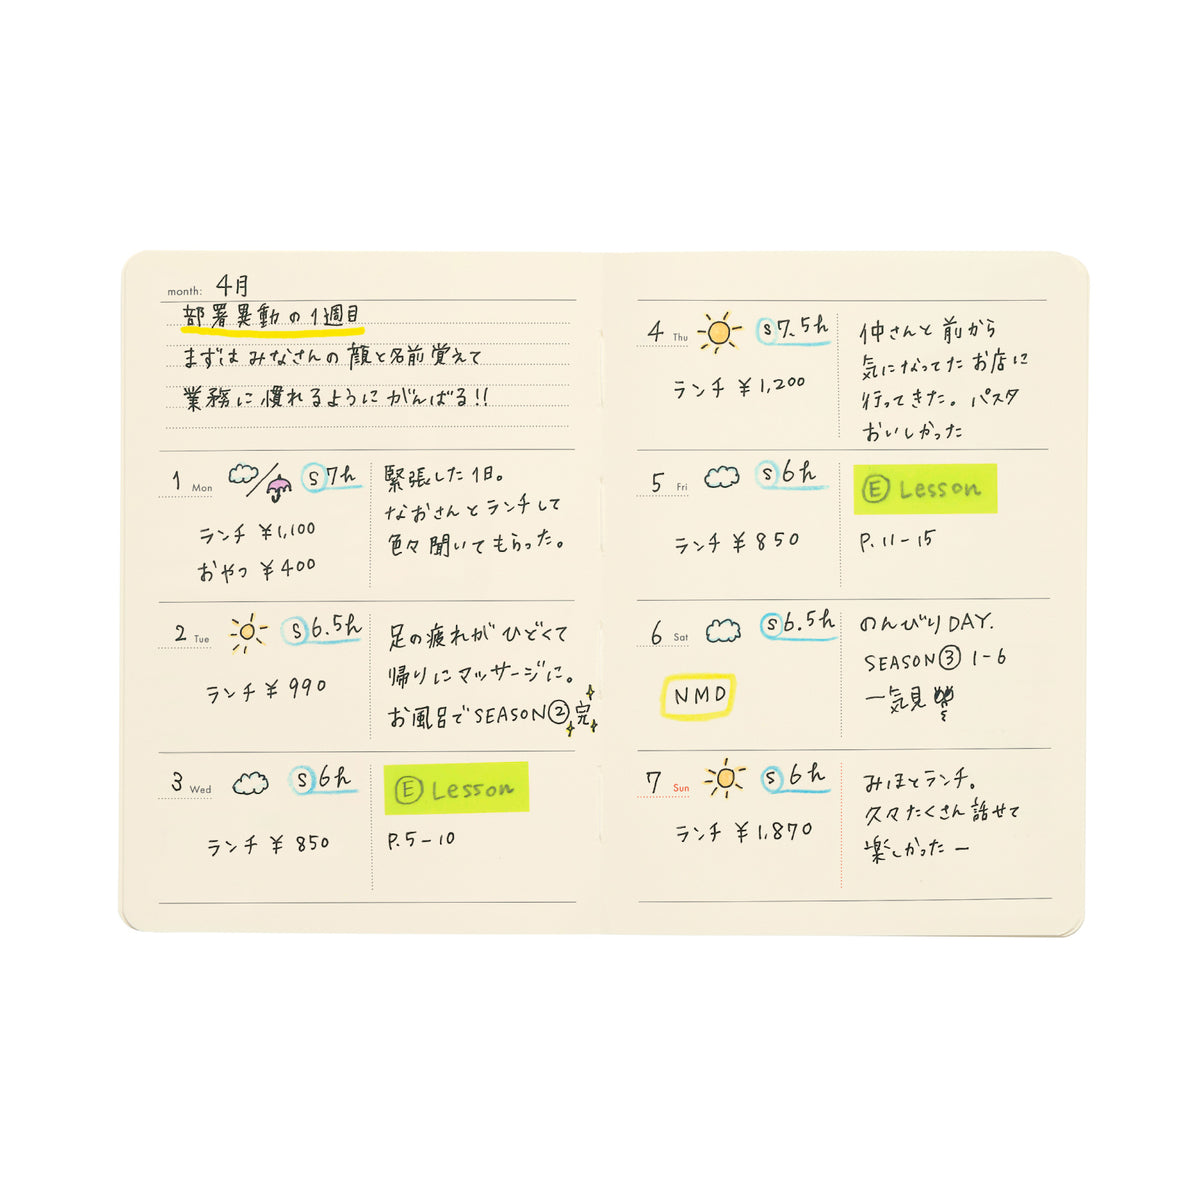 month: 4月
部署異動の1週目
まずはみなさんの顔と名前覚えて
業務に慣れるようにがんばる!!
1 Mon S 7h
ランチ ¥1,100
おやつ ¥400
緊張した1日。
なおさんとランチして
色々聞いてもらった。
2 Tue S 6.5h
ランチ ¥990
足の疲れがひどくて
帰りにマッサージに。
お風呂でSEASON②完
3 Wed S 6h
ランチ ¥850
Ⓔ Lesson
P.5-10
4 Thu S 7.5h
ランチ ¥1,200
仲さんと前から
気になってたお店に
行ってきた。パスタ
おいしかった
5 Fri S 6h
ランチ ¥850
Ⓔ Lesson
P.11-15
6 Sat S 6.5h
NMD
のんびりDAY.
SEASON③ 1-6
一気見
7 Sun S 6h
ランチ ¥1,870
みほとランチ。
久々たくさん話せて
楽しかったー